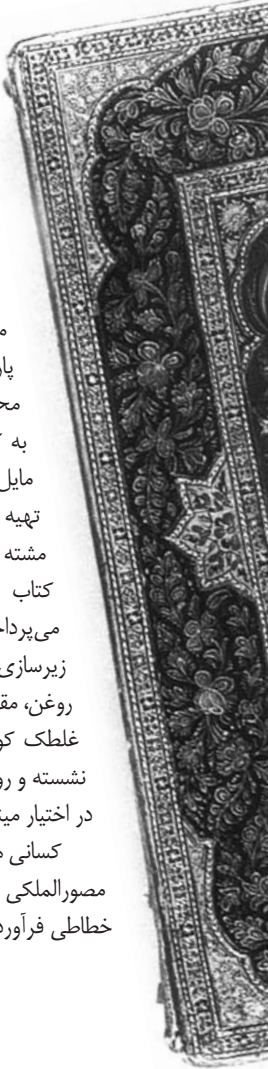 م
پار
مح
به ک
مایل
تهیه
مشته
کتاب
می‌پرداخ
زیرسازی
روغن، مق
غلطک کو
نشسته و رو
در اختیار مینا
کسانی م
مصورالملکی
خطاطی فرآورد